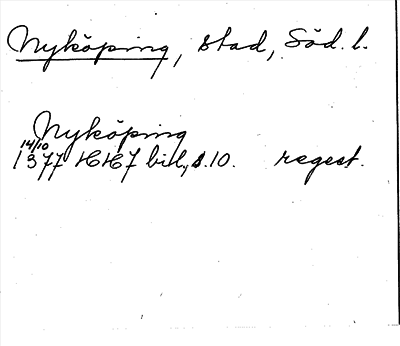 Nyköping, stad, Söd. l.
Nyköping
14/10
1377 HH7 bil., s. 10. regest.